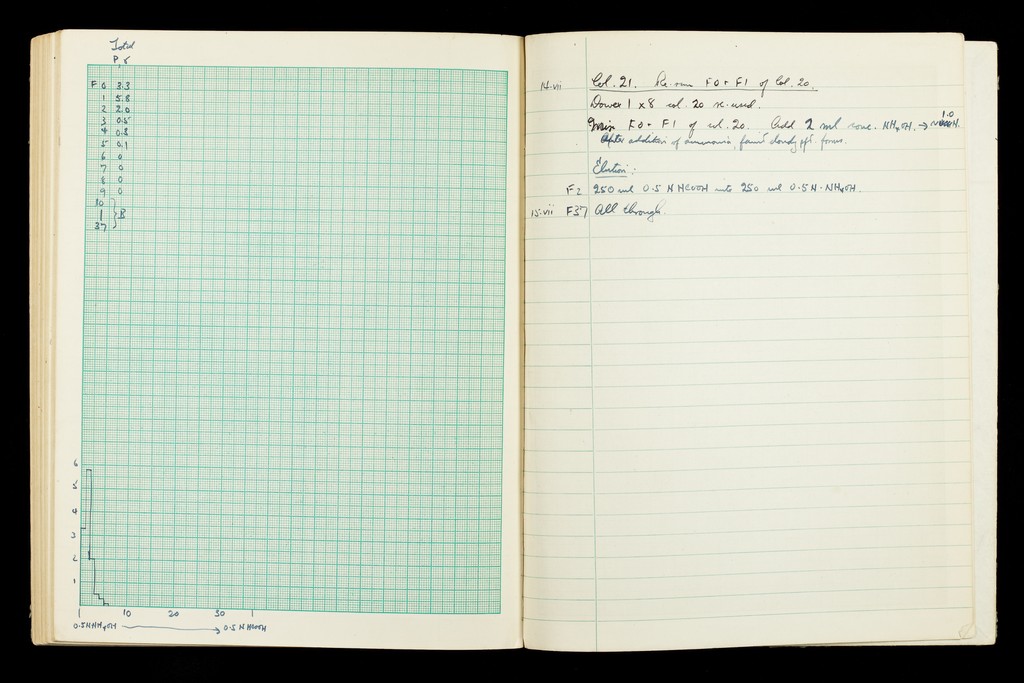 Total
P γ
F 0 3.3
1 5.8
2 2.0
3 0.5
4 0.8
5 0.1
6 0
7 0
8 0
9 0
10
1 } B
37
6
5
4
3
2
1
1 10 20 30
0.5 N NH4OH → 0.5 N HCOOH
14.vii Col. 21. Re-run F0 + F1 of Col. 20.
Dowex 1 x 8 col. 20 re-used.
F0 + F1 of col. 20. Add 2 ml conc. NH4OH. → 1.0
After addition of ammonia, faint cloudy ppt. forms.
Elution:
F2 250 ml 0.5 N HCOOH into 250 ml 0.5 N. NH4OH.
15.vii F37 All through.